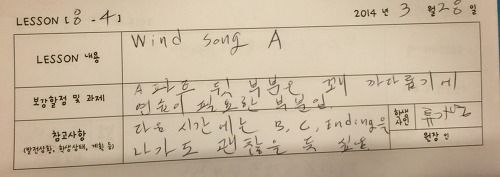 LESSON [8-4] 2014년 3월 28일
LESSON 내용
Wind Song A
보강할점 및 과제
A 파트 뒷 부분은 꽤 까다롭기에
연습이 필요한 부분임
참고사항
(발전상황, 학생상태, 계획 등)
다음 시간에는 B, C, Ending을
나가도 괜찮을 듯 싶음
학생
사인
원장 인